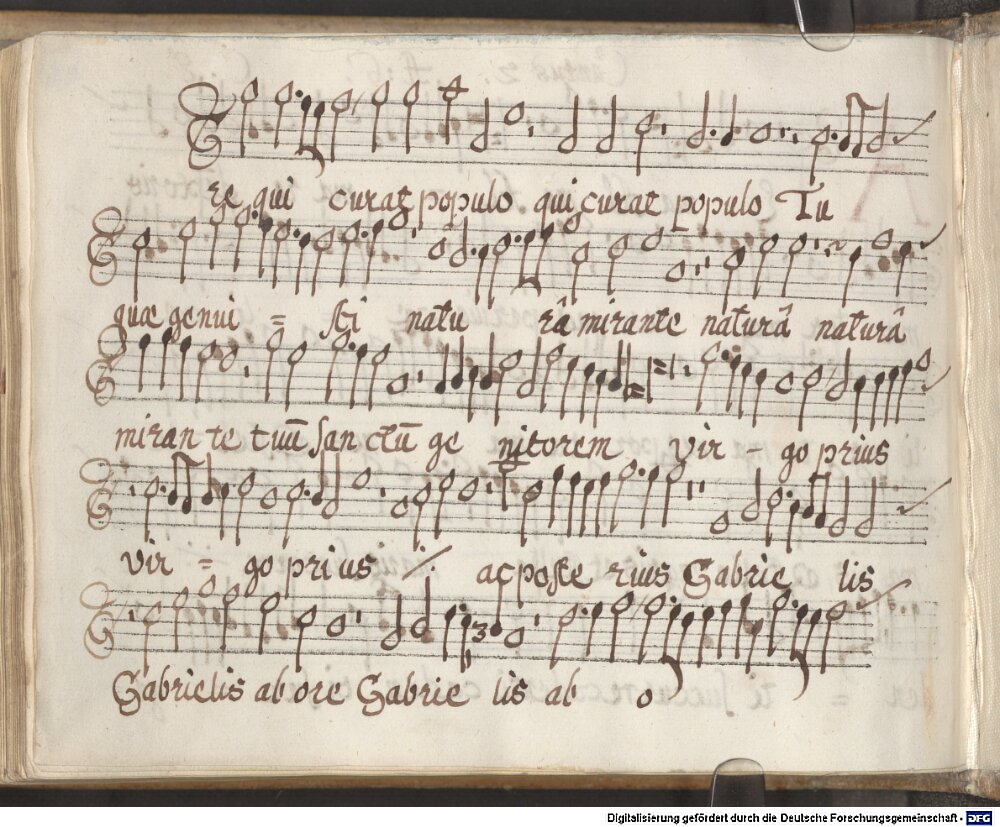 re qui curat populo qui curat populo Tu
quæ genui = sti natu râ mirante naturâ naturâ
miran te tuū san ctū ge nitorem vir - go prius
vir = go prius ·/· ac poste rius Gabrie lis
Gabrielis ab ore Gabrie lis ab o
Digitalisierung gefördert durch die Deutsche Forschungsgemeinschaft - DFG